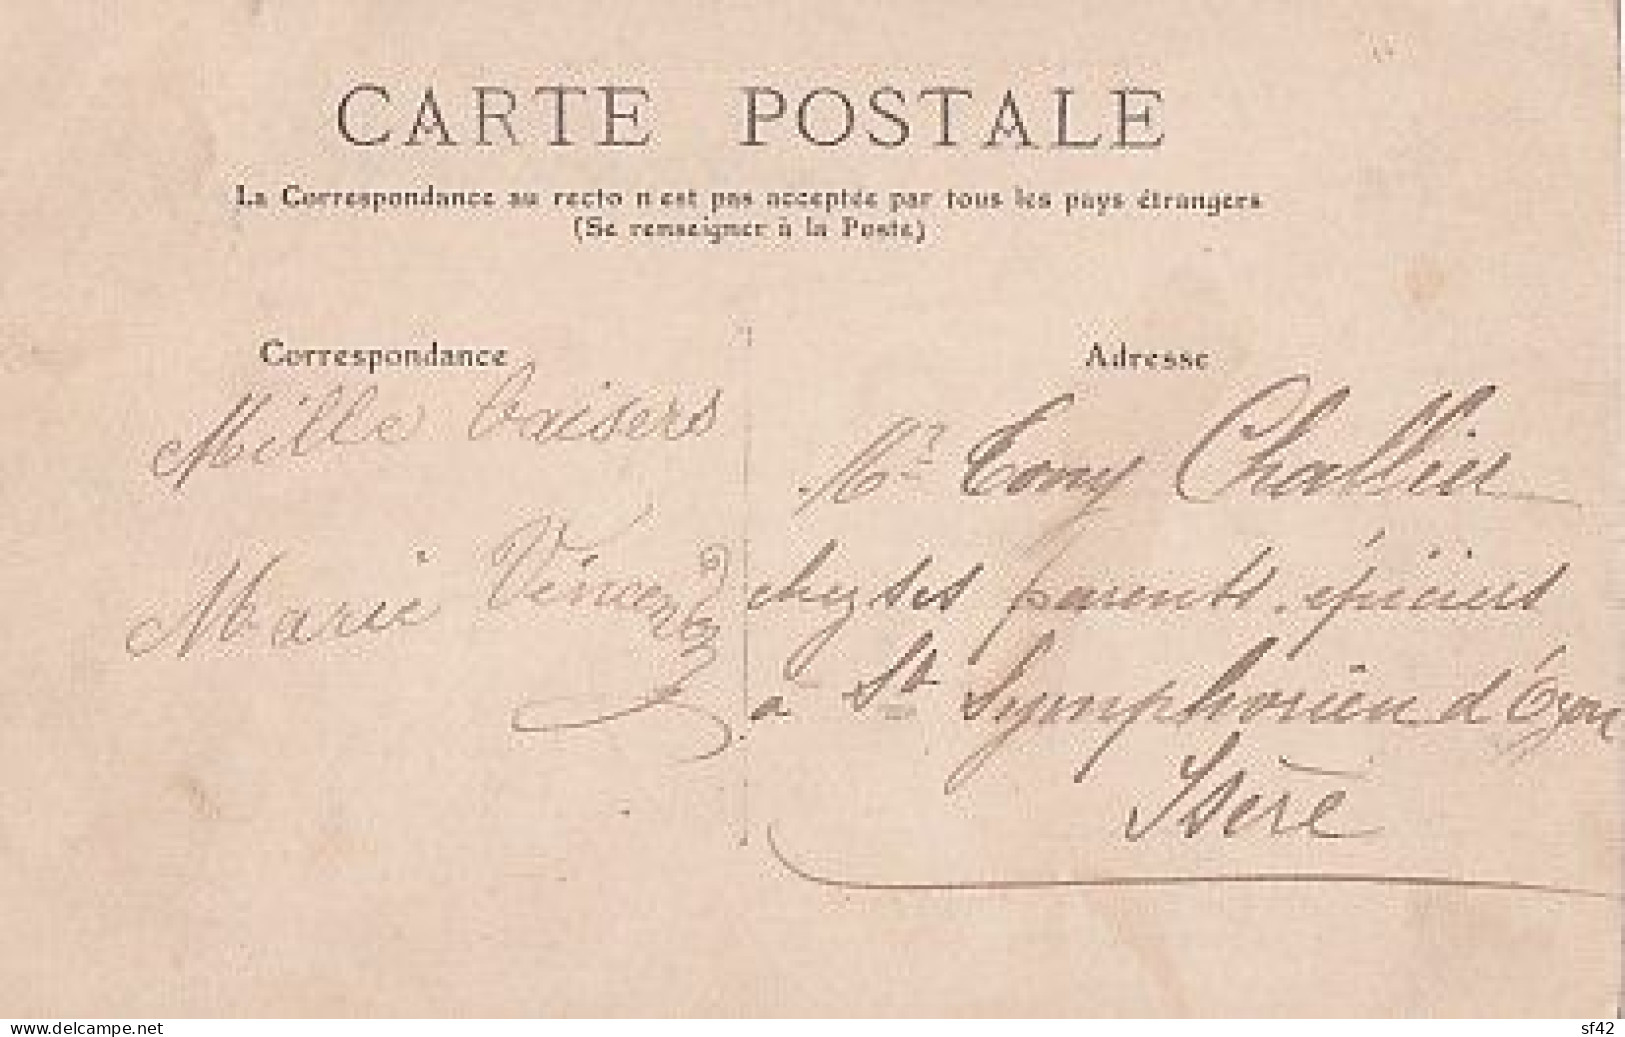 CARTE POSTALE
La Correspondance au recto n'est pas acceptée par tous les pays étrangers
(Se renseigner à la Poste)
Correspondance
Mille baisers
Marie Vincent
Adresse
Mr Tony
chez ses parents. épiciers
à St Symphorien d'Ozon
Isère
www.delcampe.net
sf42